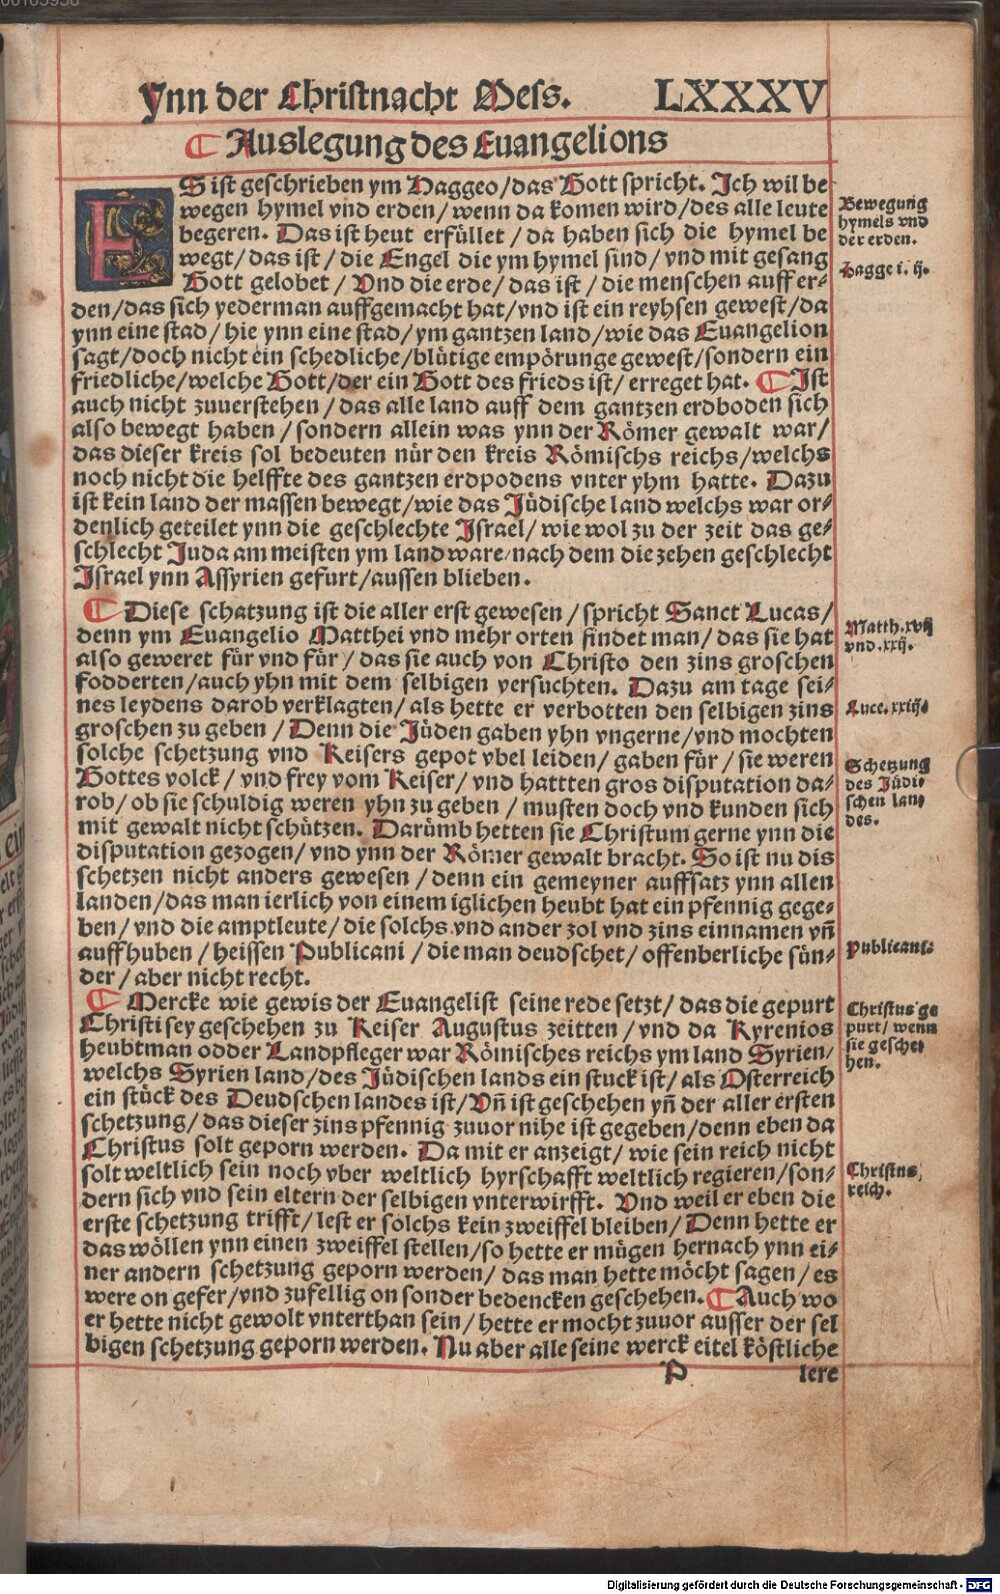 Ynn der Christnacht Mess. LXXXV
¶ Auslegung des Euangelions
ES ist geschrieben ym Haggeo/das Gott spricht. Ich wil be
wegen hymel vnd erden/wenn da komen wird/des alle leute
begeren. Das ist heut erfüllet/da haben sich die hymel be
wegt/das ist/die Engel die ym hymel sind/vnd mit gesang
Gott gelobet/Vnd die erde/das ist/die menschen auff er-
den/das sich yederman auffgemacht hat/vnd ist ein reyhsen gewest/da
ynn eine stad/hie ynn eine stad/ym gantzen land/wie das Euangelion
sagt/doch nicht ein schedliche/blůtige empörunge gewest/sondern ein
friedliche/welche Gott/der ein Gott des frieds ist/erreget hat. ¶ Ist
auch nicht zuuerstehen/das alle land auff dem gantzen erdboden sich
also bewegt haben/sondern allein was ynn der Römer gewalt war/
das dieser kreis sol bedeuten nůr den kreis Römischs reichs/welchs
noch nicht die helffte des gantzen erdpodens vnter yhm hatte. Dazu
ist kein land der massen bewegt/wie das Jüdische land welchs war or-
denlich geteilet ynn die geschlechte Israel/wie wol zu der zeit das ge-
schlecht Juda am meisten ym land ware/nach dem die zehen geschlecht
Israel ynn Assyrien gefurt/aussen blieben.
¶ Diese schatzung ist die aller erst gewesen/spricht Sanct Lucas/
denn ym Euangelio Matthei vnd mehr orten findet man/das sie hat
also geweret für vnd für/das sie auch von Christo den zins groschen
fodderten/auch yhn mit dem selbigen versuchten. Dazu am tage sei-
nes leydens darob verklagten/als hette er verbotten den selbigen zins
groschen zu geben/Denn die Jüden gaben yhn vngerne/vnd mochten
solche schetzung vnd Keisers gepot vbel leiden/gaben für/sie weren
Gottes volck/vnd frey vom Keiser/vnd hattten gros disputation da-
rob/ob sie schuldig weren yhn zu geben/musten doch vnd kunden sich
mit gewalt nicht schützen. Darümb hetten sie Christum gerne ynn die
disputation gezogen/vnd ynn der Römer gewalt bracht. So ist nu dis
schetzen nicht anders gewesen/denn ein gemeyner auffsatz ynn allen
landen/das man ierlich von einem iglichen heubt hat ein pfennig gege-
ben/vnd die amptleute/die solchs vnd ander zol vnd zins einnamen vn̄
auffhuben/heissen Publicani/die man deudschet/offenberliche sün-
der/aber nicht recht.
¶ Mercke wie gewis der Euangelist seine rede setzt/das die gepurt
Christi sey geschehen zu Keiser Augustus zeitten/vnd da Kyrenios
heubtman odder Landpfleger war Römisches reichs ym land Syrien/
welchs Syrien land/des Jüdischen lands ein stuck ist/als Osterreich
ein stück des Deudschen landes ist/Vn̄ ist geschehen yn̄ der aller ersten
schetzung/das dieser zins pfennig zuuor nihe ist gegeben/denn eben da
Christus solt geporn werden. Da mit er anzeigt/wie sein reich nicht
solt weltlich sein noch vber weltlich hyrschafft weltlich regieren/son-
dern sich vnd sein eltern der selbigen vnterwirfft. Vnd weil er eben die
erste schetzung trifft/lest er solchs kein zweiffel bleiben/Denn hette er
das wöllen ynn einen zweiffel stellen/so hette er mügen hernach ynn ei-
ner andern schetzung geporn werden/das man hette möcht sagen/es
were on gefer/vnd zufellig on sonder bedencken geschehen. ¶ Auch wo
er hette nicht gewolt vnterthan sein/hette er mocht zuuor ausser der sel
bigen schetzung geporn werden. Nu aber alle seine werck eitel köstliche
P lere
Bewegung
hymels vnd
der erden.
Hagge i. ij.
Matth. xvij
vnd. xxij.
Luce. xxiij.
Schetzung
des Jüdi-
schen lan-
des.
Publicani.
Christus ge
purt/wenn
sie gesche-
hen.
Christus
reich.
Digitalisierung gefördert durch die Deutsche Forschungsgemeinschaft - DFG